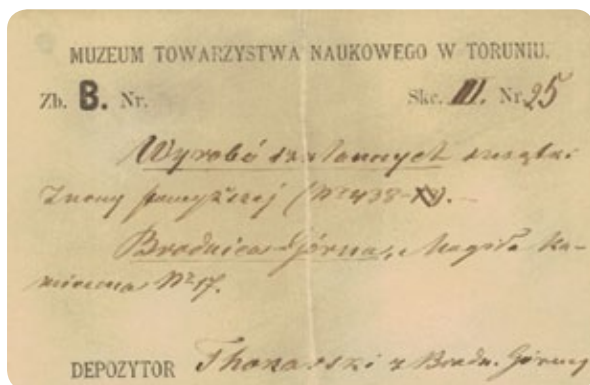 MUZEUM TOWARZYSTWA NAUKOWEGO W TORUNIU.
Zb. B. Nr. Skc. III. Nr. 25
Wyrobów szklannych szczątki
z powyższej (Nr 438-
Brodnica Górna, Mogiła ka-
mienna Nr 17.
DEPOZYTOR Thokarski z Brodn. Górnej